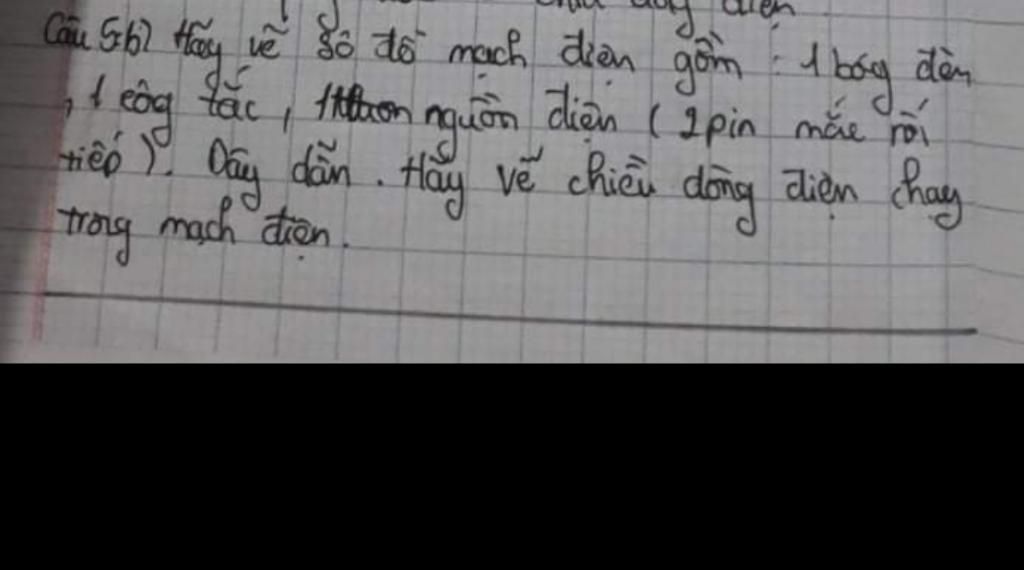 chiều dòng điện
Câu 5b) Hãy vẽ sơ đồ mạch điện gồm : 1 bóng đèn
, 1 công tắc, nguồn điện ( 2pin mắc rối
tiếp ). Dây dẫn . Hãy vẽ chiều dòng điện chạy
trong mạch điện.